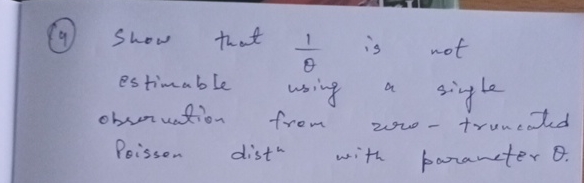 (19) Show that 1/θ is not
estimable using a single
observation from zero-truncated
Poisson distⁿ with parameter θ.